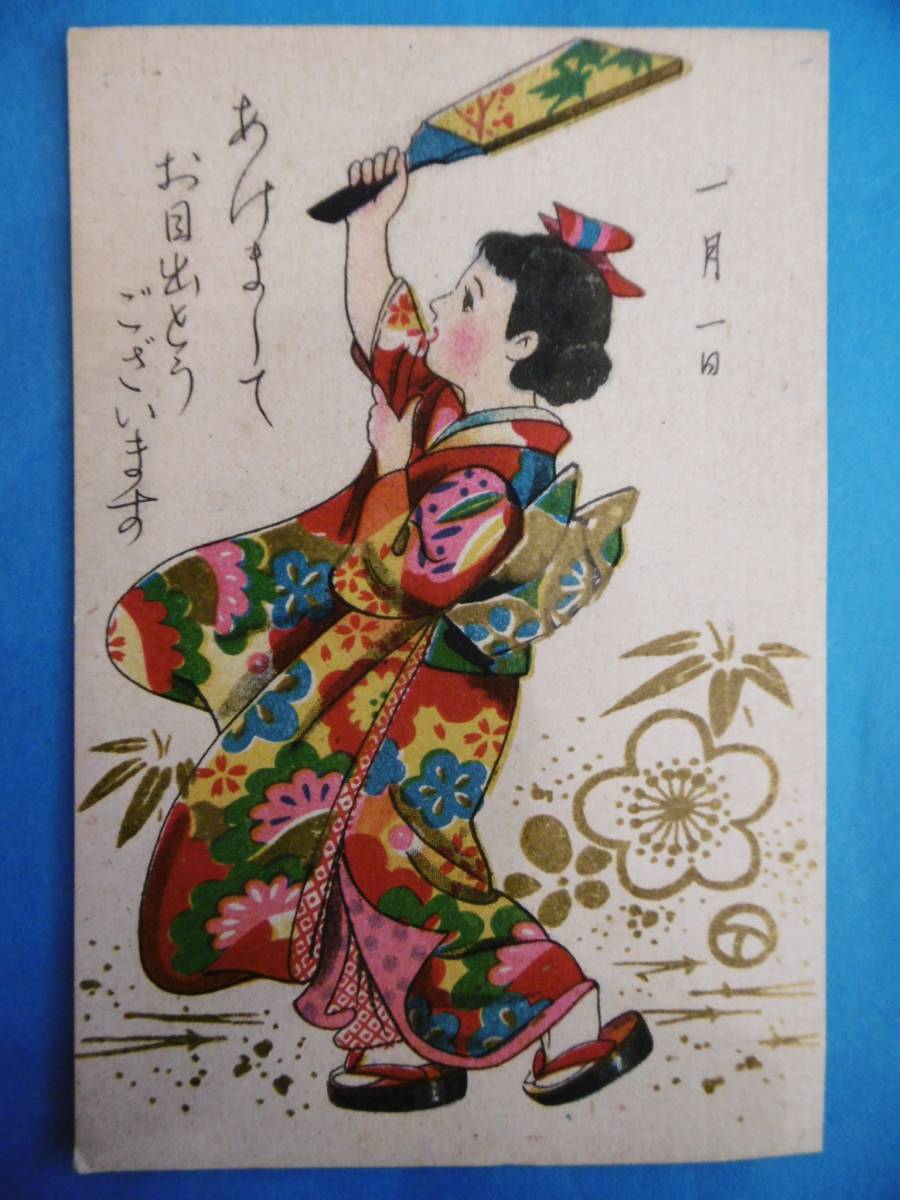 一月一日
あけまして
お目出とう
ございます